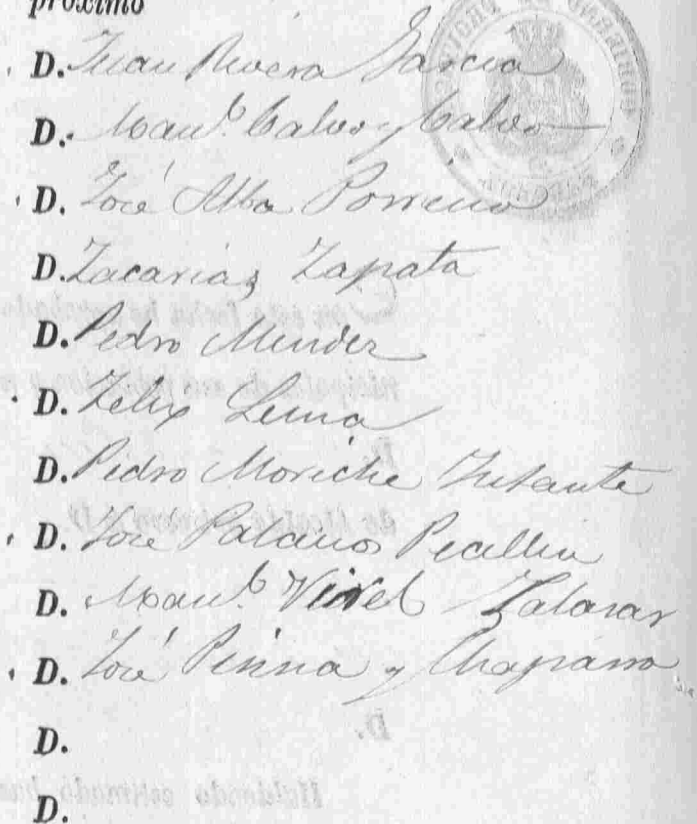 próximo
D. Juan Rivera Garcia
D. Manl. Calvo y Calvo
D. José Alba Porreno
D. Zacarias Zapata
D. Pedro Mendez
D. Felix Lema
D. Pedro Moriche Infante
D. José Palacios
D. Manl. Salazar
D. José Penna y Chaparro
D.
D.